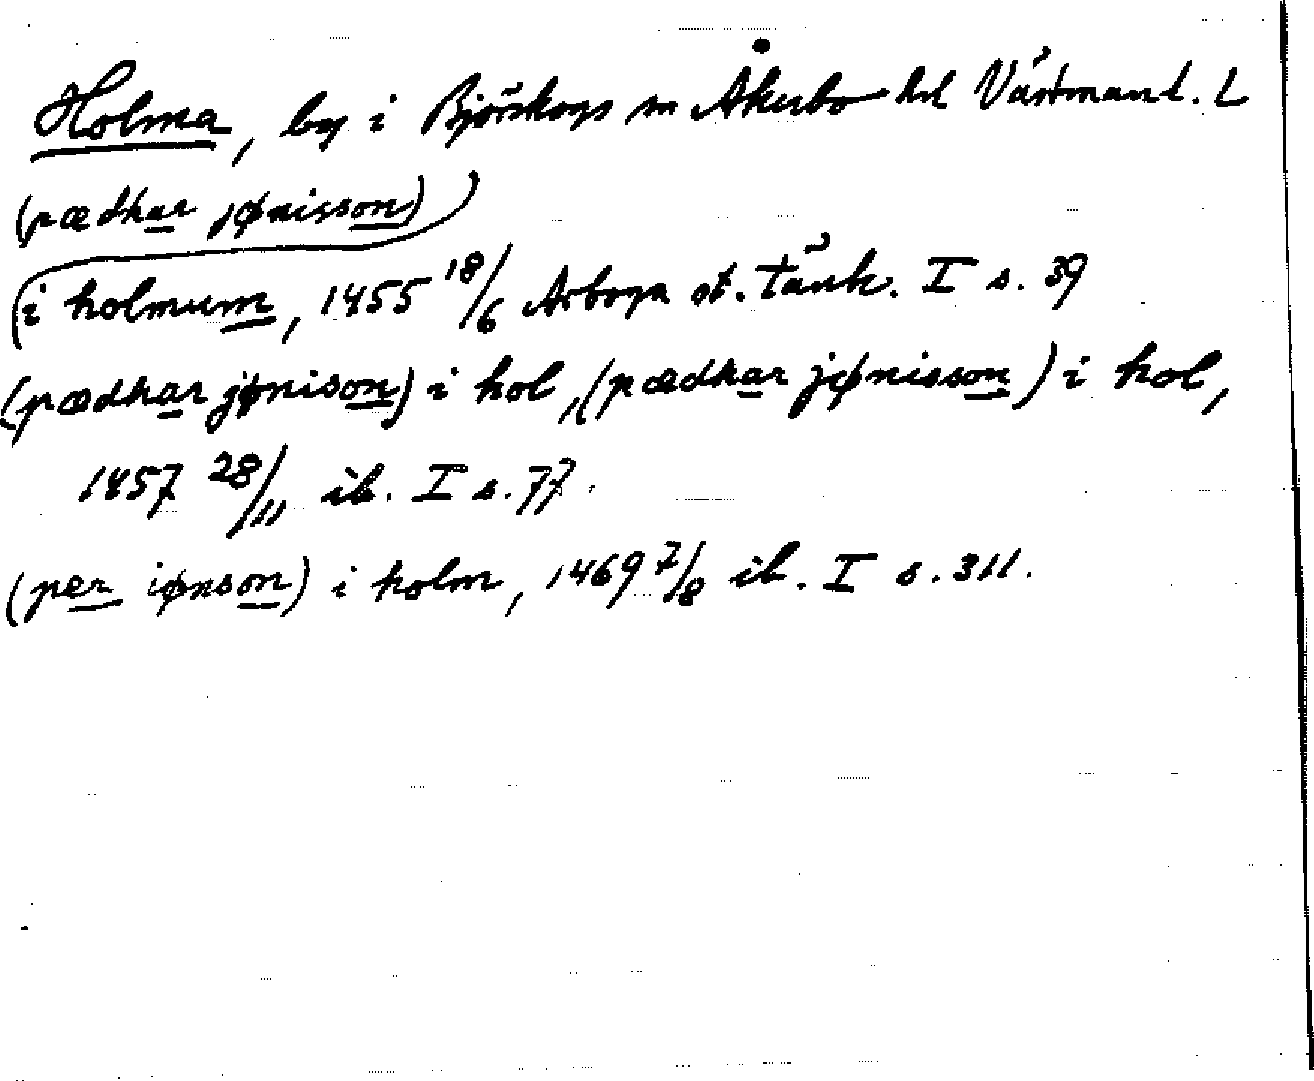 Holma, by i Björskogs sn Åkerbo hd Västmanl. L
(pædhar jønisson)
i holmum, 1455 18/6 Arboga st. tänk. I s. 39
(pædhar jønison) i hol, (pædhar jønisson) i hol,
1457 28/11 ib. I s. 77.
(per iønson) i holm, 1469 7/8 ib. I s. 311.